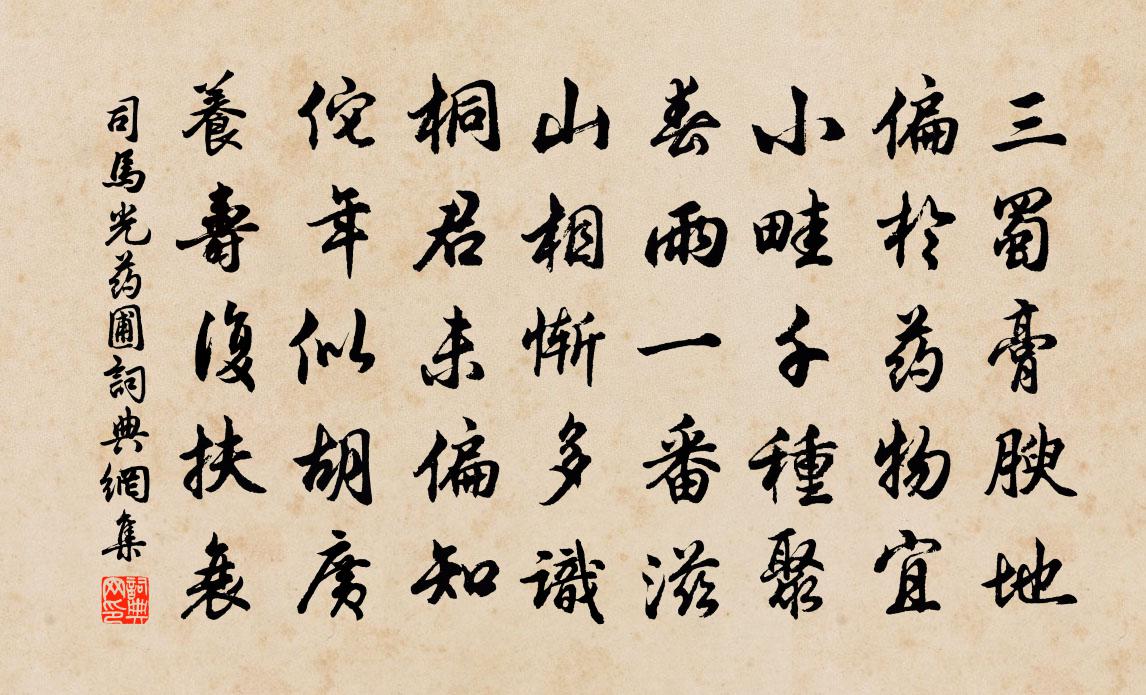 三蜀膏腴地
偏於药物宜
小畦千種聚
春雨一番滋
山相慚多識
桐君未偏知
侘年似胡廣
養壽復扶衰
司馬光药圃詞典網集
詞典网印